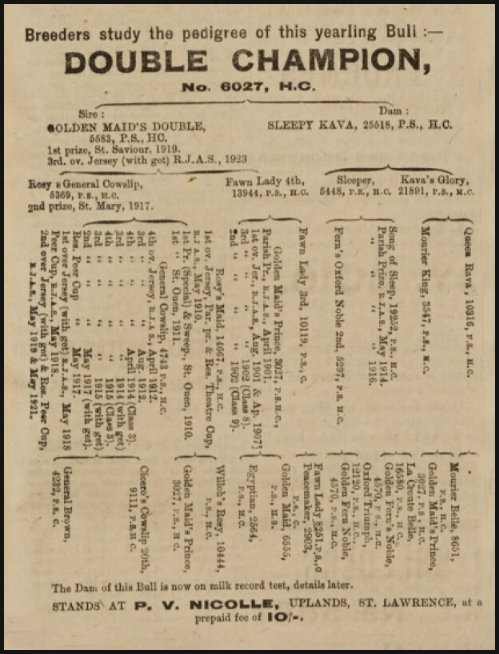 Breeders study the pedigree of this yearling Bull :—
DOUBLE CHAMPION,
No. 6027, H.C.
Sire :
GOLDEN MAID'S DOUBLE,
5583, P.S., HC.
1st prize, St. Saviour, 1919.
3rd. ov. Jersey (with get) R.J.A.S., 1923
Dam :
SLEEPY KAVA, 25518, P.S., H.C.
Rosy's General Cowslip,
5369, P.S., H.C.
2nd prize, St. Mary, 1917.
Fawn Lady 4th,
13944, P.S., H.C.
Sleeper,
5448, P.S., H.C.
Kava's Glory,
21891, P.S., H.C.
Queen Rava, 10316, P.S., H.C.
Mourier King, 3547, P.S., H.C.
Song of Sleep, 19252, P.S., H.C.
Parish Prize, R.J.A.S., May 1914.
" " " " 1916.
Fern's Oxford Noble 2nd, 5297, P.S. H.C.
Fawn Lady 3rd, 10119, P.S., C.
Golden Maid's Prince, 3027, P.S.H.C.,
Parish Pr., R.J.A.S., April 1901.
1st ov. Jer., R.J.A.S., Aug. 1901 & Ap. 1907
3rd " " " 1902 (Class 8).
2nd " " " 1902 (Class 9).
Rosy's Maid, 14067, P.S., H.C.
1st ov. Jersey, Par. pr. & Res. Theatre Cup,
R.J.A.S., May 1910.
1st Pr. (Special) & Sweep., St. Ouen, 1910.
1st " St. Ouen, 1911.
General Cowslip, 4743 P.S., H.C.
4th ov. Jersey, R.J.A.S., April 1912.
3rd " " " Aug. 1912.
4th " " " April 1914 (Class 3).
3rd " " " " 1914 (with get)
4th " " " " 1915 (Class 3).
3rd " " " " 1915 (with get)
2nd " " " May 1917 (with get).
Res. Peer Cup " May 1917.
1st over Jersey (with get) R.J.A.S., May 1918
Peer Cup, R.J.A.S., May 1918.
2nd over Jersey (with get) & Res. Peer Cup,
R.J.A.S., May 1919 & May 1921.
Mourier Belle, 8651,
P.S., H.C.
Golden Maid's Prince,
3027, P.S., H.C.
La Croute Belle,
16580, P.S., H.C.
Golden Fern's Noble,
4570, P.S., H.C.
Oxford Triumph,
12120, P.S., H.C.
Golden Fern Noble,
4570, P.S., H.C.
Fawn Lady 8251, P.S., C
Peacemaker, 2903,
P.S., C.
Golden Maid, 6555,
P.S., H.S.
Egyptian, 2564,
P.S., H.C.
Rosy, 10444,
P.S., H.C.
Golden Maid's Prince,
3027, P.S., H.C.
Cicero's Cowslip, 20th,
9111, P.S.H.C.
General Brown,
4232, P.S., C.
The Dam of this Bull is now on milk record test, details later.
STANDS AT P. V. NICOLLE, UPLANDS, ST. LAWRENCE, at a
prepaid fee of 10/-.